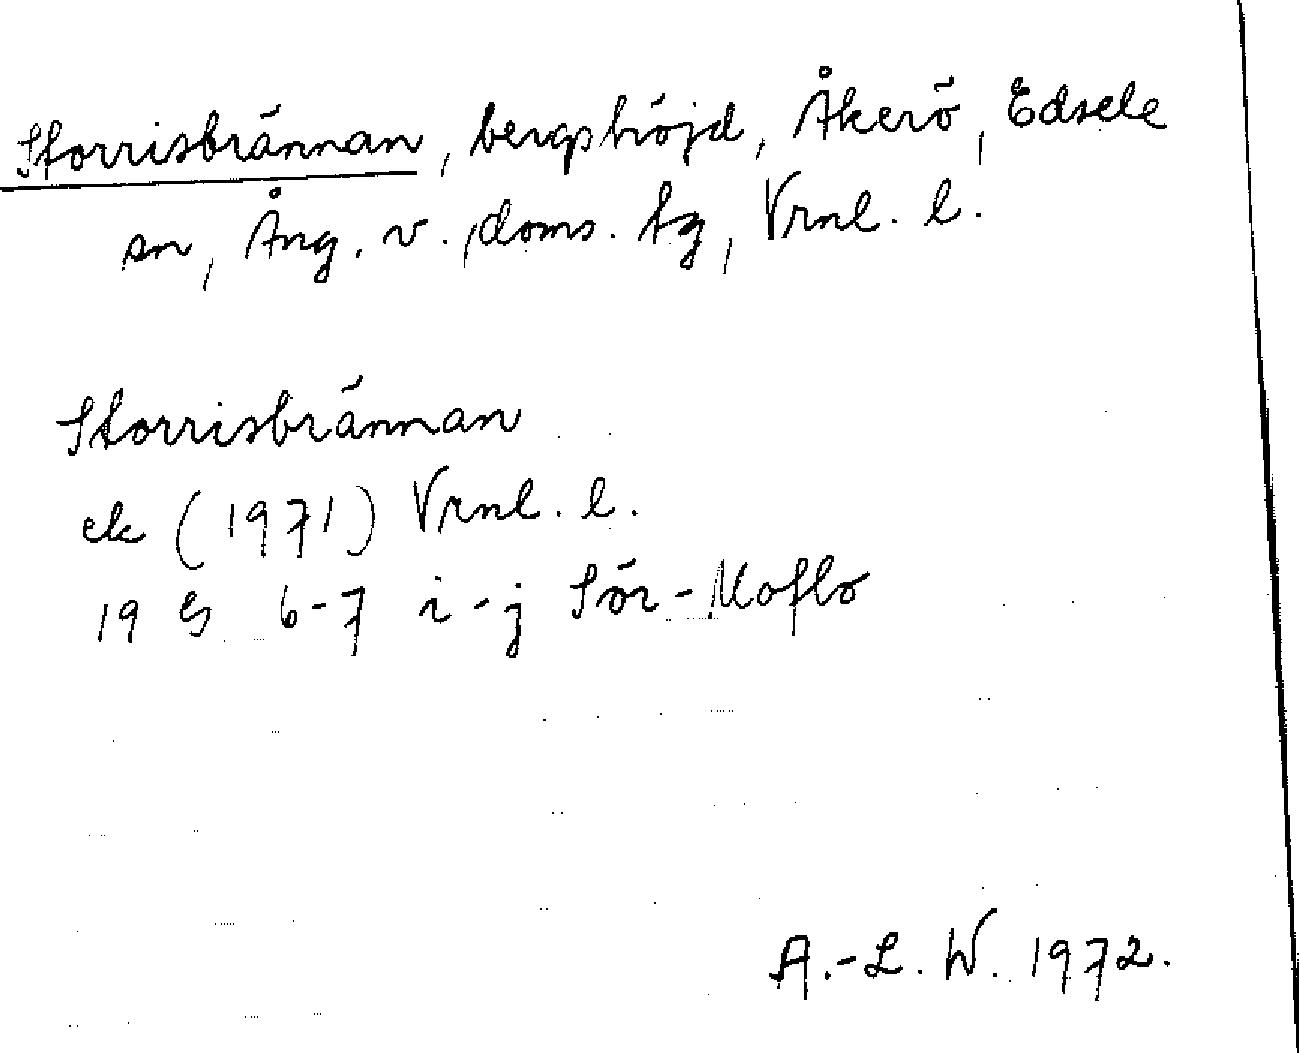 Storrisbrännan, bergshöjd, Åkerö, Edsele
sn, Ång. v., doms. tg, Vrnl. l.
Storrisbrännan
ek (1971) Vrnl. l.
19 G 6-7 i-j Sör-Moflo
A.-L. W. 1972.